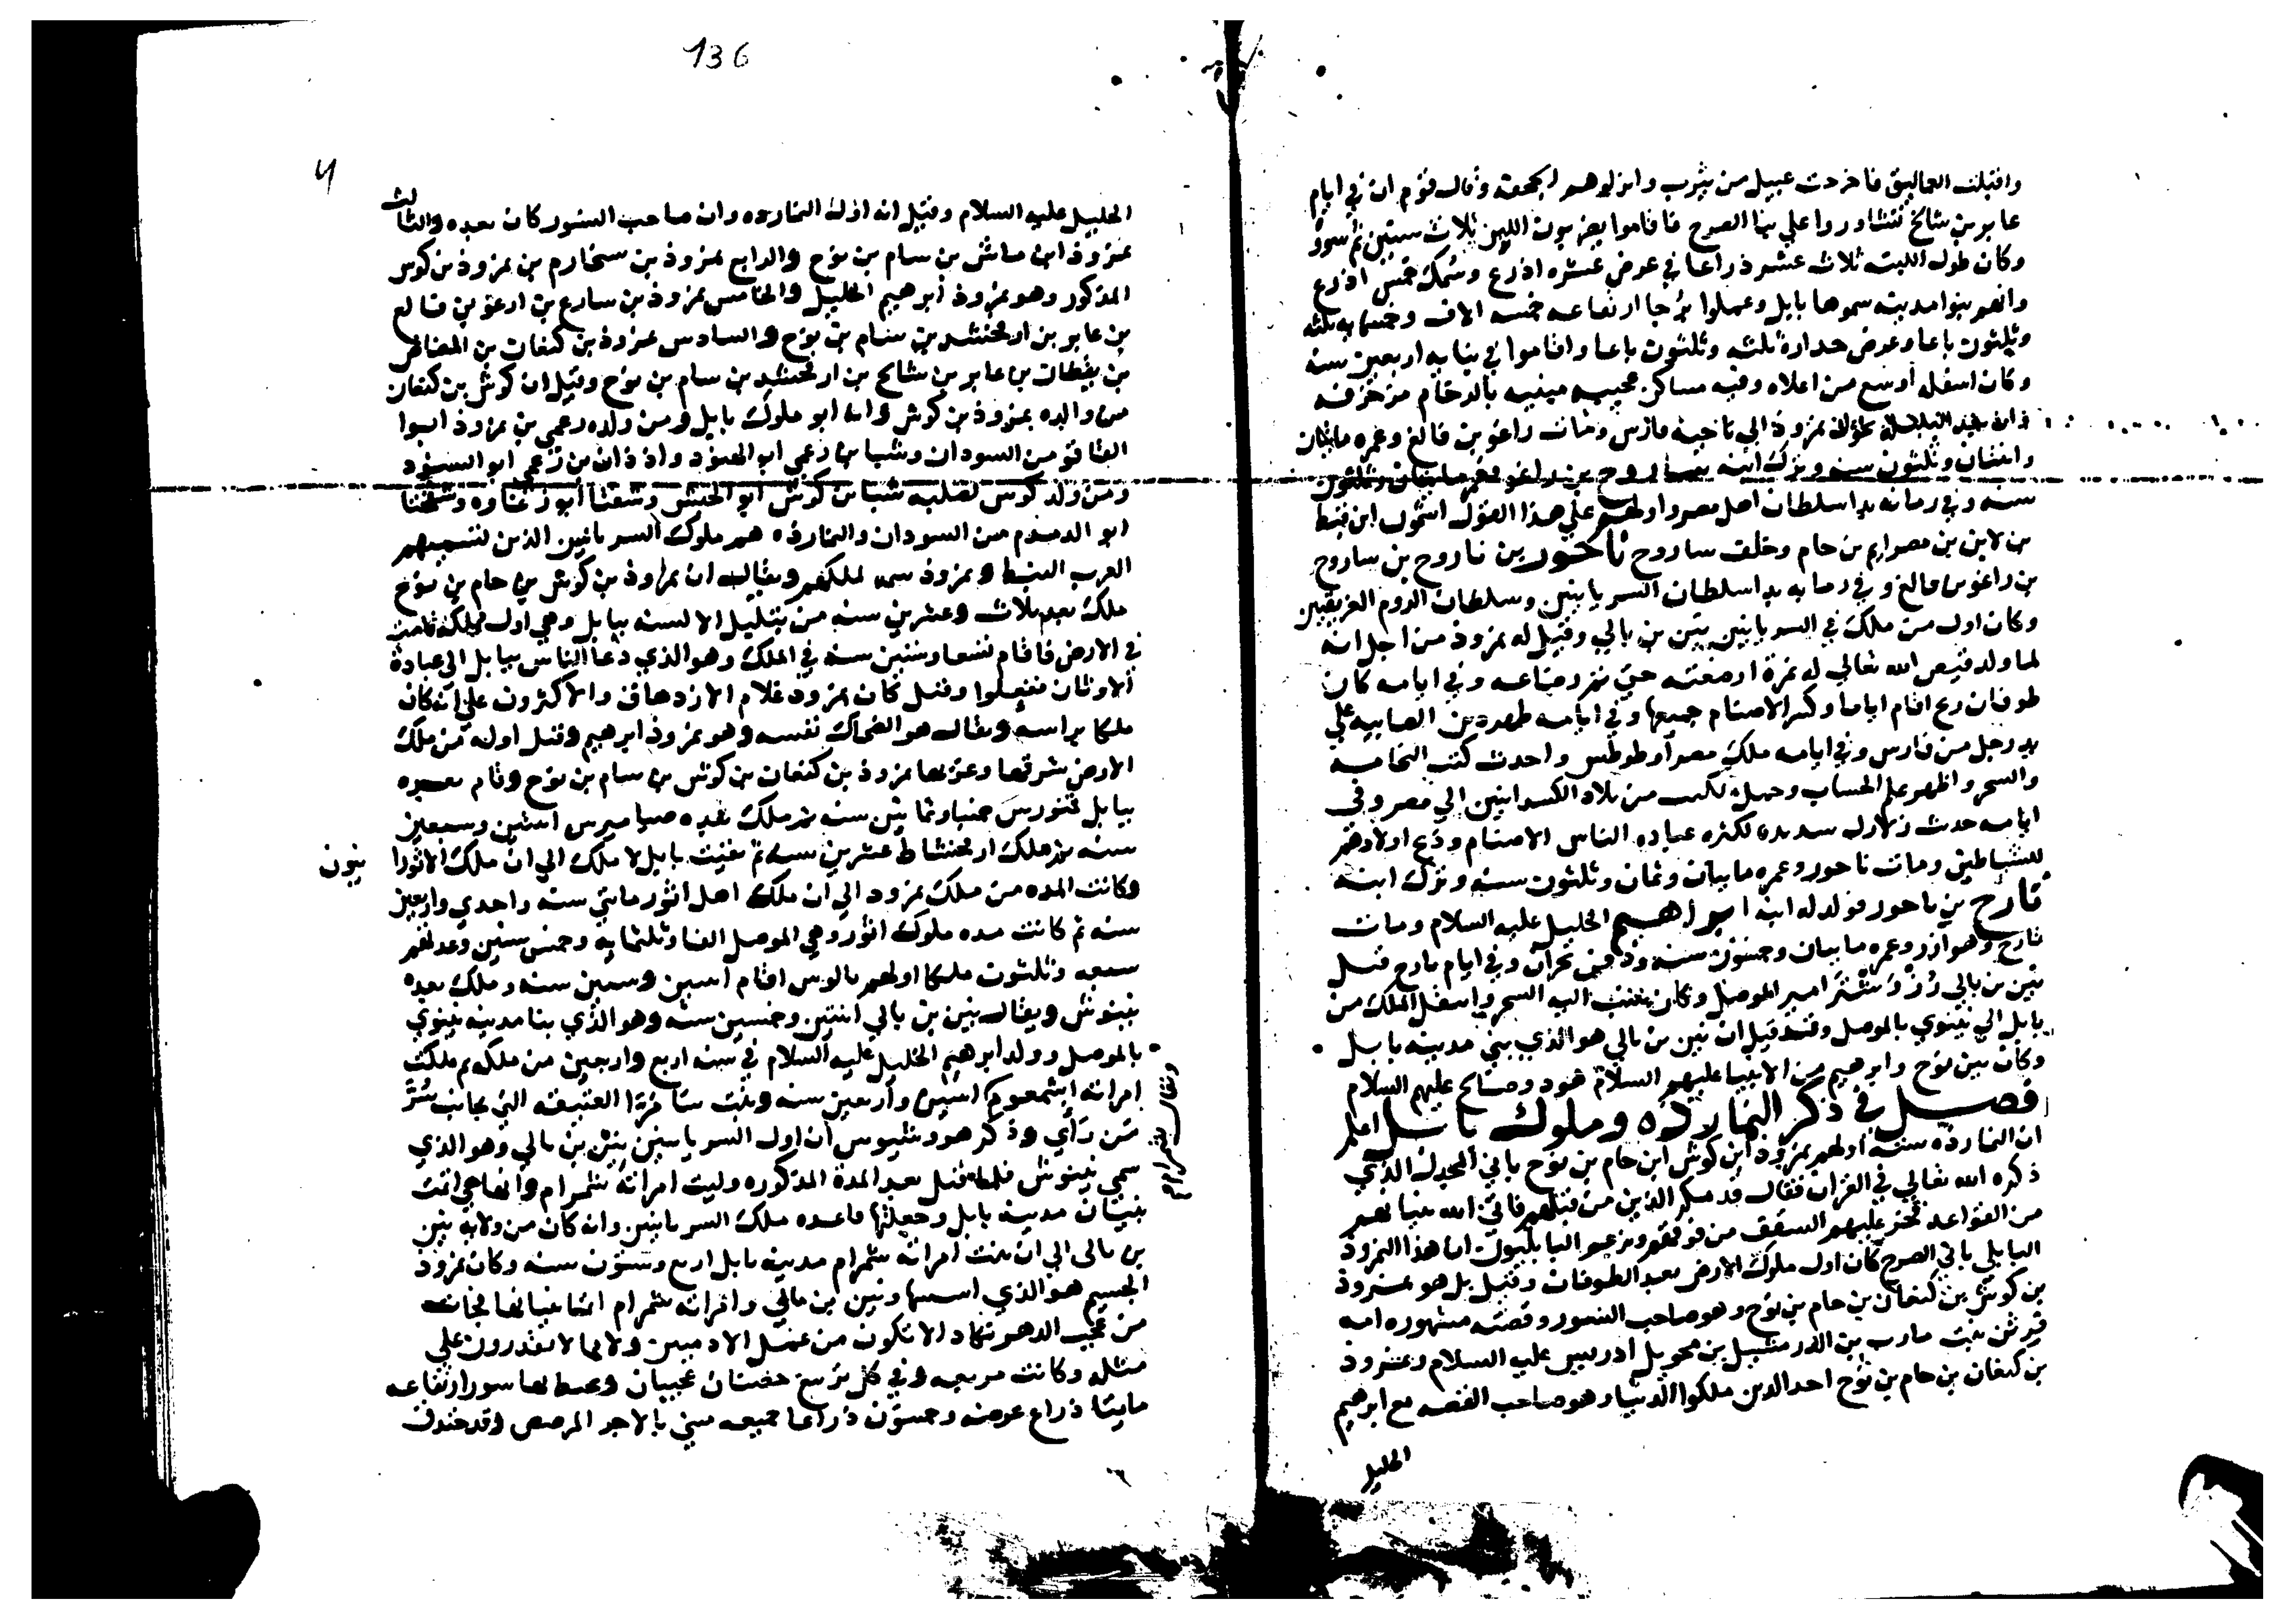 واقبلت العماليق فاخرجت عبيل من يثرب وانزلوهم الجحفه وقال قوم ان في ايام
عابر بن شالخ تشاوروا علي بنا الصرح فاقاموا يضربون اللبن ثلاث سنين ثم
وكان طول اللبنه ثلاث عشر ذراعا في عرض عشره اذرع وسمك خمس اذرع
وانهم بنوا مدينه سموها بابل وعملوا برجا ارتفاعه خمسه الاف وخمسمايه ثلثه
وثلثون باعا وعرض جداره ثلثه وثلثون باعا واقاموا في بنايه اربعين سنه
وكان اسفله اوسع من اعلاه وفيه مساكن عجيبه مبنيه بالرخام مزخرفه
وان بعد البلبله تحول نمزوذ الي ناحيه فارس ومات راغو بن فالغ وعمره مايتان
واثنتان وثلثون سنه وترك ابنه ساروح بن راغو وعمره مايتان وثلثون
سنه وفي زمانه بدا سلطان اهل مصر واولهم علي هذا القول اشمون ابن قبط
بن لابن بن مصرايم بن حام وخلف ساروح ناحور بن ناروح بن ساروح
بن راغو بن فالغ وفي زمانه بدا سلطان السريانيين وسلطان الروم الغريقيين
وكان اول من ملك في السريانيين بنين بن بالي وقيل له نمزوذ من اجل انه
لما ولد قيض الله تعالي له نمرة ارضعته حتي تم رضاعه وفي ايامه كان
طوفان ريح اقام اياما وكسر الاصنام جميعها وفي ايامه ظهر دين الصابيه علي
يد رجل من فارس وفي ايامه ملك مصر اوطوطس واحدث كتب النحاسه
والسحر واظهر علم الحساب وحمل من بلاد الكسدانيين الي مصر وفي
ايامه حدث زلازل شديده لكثره عباده الناس الاصنام وذبح اولادهم
للشياطين ومات ناحور وعمره مايتان وثمان وثلثون سنه وترك ابنه
تارح بن ناحور فولد له ابنه ابراهيم الخليل عليه السلام ومات
تارح وهو ازر وعمره مايتان وخمسون سنه ودفن بحران وفي ايام تارح قتل
بنين بن بالي امير الموصل وكان ينسب اليه السحر وانتقل الملك من
بابل الي نينوي بالموصل وقد قيل ان بنين بن بالي هو الذي بني مدينه بابل
وكان بين نوح وابرهيم من الانبيا عليهم السلام هود وصالح عليهم السلام
فصل في ذكر النمارذه وملوك بابل اعلم
ان النمارذه سته اولهم نمزوذ ابن كوش ابن حام بن نوح باني المجدل الذي
ذكره الله تعالي في القران فقال قد مكر الذين من قبلهم فاتي الله بنيانهم
من القواعد فخر عليهم السقف من فوقهم ويزعم البابليون ان هذا النمروذ
البابلي باني الصرح كان اول ملوك الارض بعد الطوفان وقيل بل هو نمزوذ
بن كوش بن كنعان بن حام بن نوح وهو صاحب النسور وقصته مشهوره امه
بنت مارب بن الدرمشيل بن محويل ادريس عليه السلام ونمزوذ
بن كنعان بن حام بن نوح احد الذين ملكوا الدنيا وهو صاحب القصه مع ابرهيم
الخليل
136
4
الخليل عليه السلام وقيل انه اول النمارده وان صاحب النسور كان بعده والثالث
نمزوذ ابن ماش بن سام بن نوح والرابع نمزوذ بن سنحارم بن نمزوذ بن كوش
المذكور وهو نمزوذ ابرهيم الخليل والخامس نمزوذ بن سارع بن ارعو بن فالع
بن عابر بن ارفخشد بن سام بن نوح والسادس نمزوذ بن كنعان بن المصاص
بن يقطان بن عابر بن شالح بن ارفخشد بن سام بن نوح وقيل ان كوش بن كنعان
من والده نمزوذ بن كوش وانه ابو ملوك بابل ومن ولده رعمي بن نمزوذ ابوا
القاقو من السودان وشبا بن رعمي ابو الهنود واذ ذان بن رعمي ابو السنود
ومن ولد كوش لصلبه شبا بن كوش ابو الحبش وشفتا ابو زغاوه وشحتنا
ابو الدمدم من السودان والنمارذه هم ملوك السريانيين الذين تسميهم
العرب النبط ونمزوذ سمه لملكهم ويقال ان نمزوذ بن كوش بن حام بن نوح
ملك بعد ثلاث وعشرين سنه من تبليل الالسنه ببابل وهي اول مملكه قامت
في الارض فاقام تسعا وستين سنه في الملك وهو الذي دعا الناس ببابل الي عبادة
الاوثان ففعلوا وقيل كان نمزوذ غلام الازدهاق والاكثرون علي انه كان
ملكا براسه ويقال هو الضحاك نفسه وهو نمزوذ ابرهيم وقيل اول من ملك
الارض شرقها وغربها نمزوذ بن كنعان بن كوش بن سام بن نوح وقام بعده
ببابل قنورس خمسا وثمانين سنه ثم ملك بعده صاميرس اثنتين وسبعين
سنه ثم ملك ارفخشاط عشرين سنه ثم بقيت بابل لا ملك الي ان ملك الاثورا
نيون
وكانت المده من ملك نمزود الي ان ملك اهل اثور مايتي سنه واحدي واربعين
سنه ثم كانت مده ملوك اثور وهي الموصل الفا وثلثمايه وخمس سنين وعدتهم
سبعه وثلثون ملكا اولهم بالوس اقام اثنين وستين سنه وملك بعده
نينوش ويقال بنين بن بالي اثنتين وخمسين سنه وهو الذي بنا مدينه نينوي
بالموصل وولد ابرهيم الخليل عليه السلام في سنه اربع واربعين من ملكه ثم ملكت
امراته اشمعوم اثنين واربعين سنه وبنت سامرة العتيقه التي بجانب سر
من راي وذكر هوروشيوس ان اول السريانيين بنين بن بالي وهو الذي
سمي نينوش فلما قتل بعد المدة المذكوره وليت امراته شمرام وانها هي اتمت
بنيان مدينه بابل وجعلتها قاعده ملك السريانيين وانه كان من ولايه بنين
بن بالي الي ان بنت امراته شمرام مدينه بابل اربع وستون سنه وكان نمزوذ
الجسيم هو الذي اسسها وبنين بن بالي وامراته شمرام اتما بنيانها فجات
من عجب الدهر تكاد الا تكون من عمل الادميين ولا بها لا يقدرون علي
مثله وكانت مربعه وفي كل تربيع حصنان عجيبان ومحيط بها سور ارتفاعه
مايتا ذراع عرضه وخمسون ذراعا جميعه بني بالاجر المرصص وقد خندق